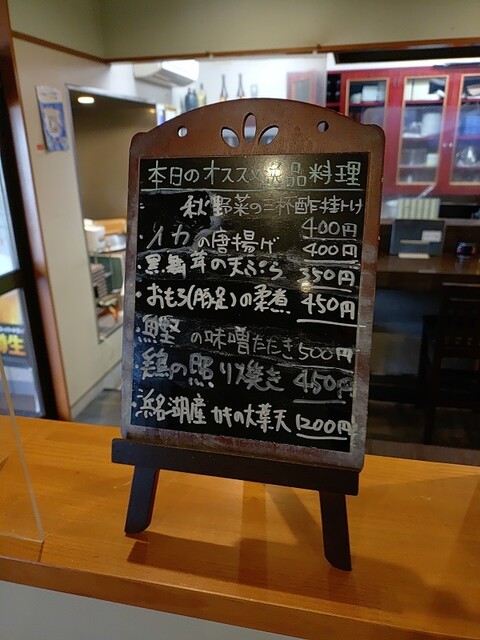 本日のオススメ一品料理
秋野菜の二杯酢掛け
400円
・イカの唐揚げ 400円
・黒舞茸の天ぷら 350円
・おもろ(豚足)の柔煮 450円
・鰹の味噌たたき 500円
・鶏の照り焼き 450円
・浜名湖産カキの大葉天 1200円